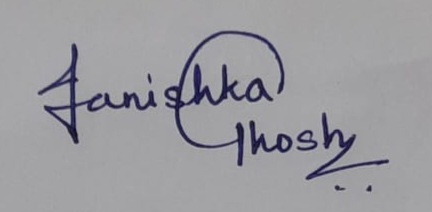 Tanishka
Ghosh